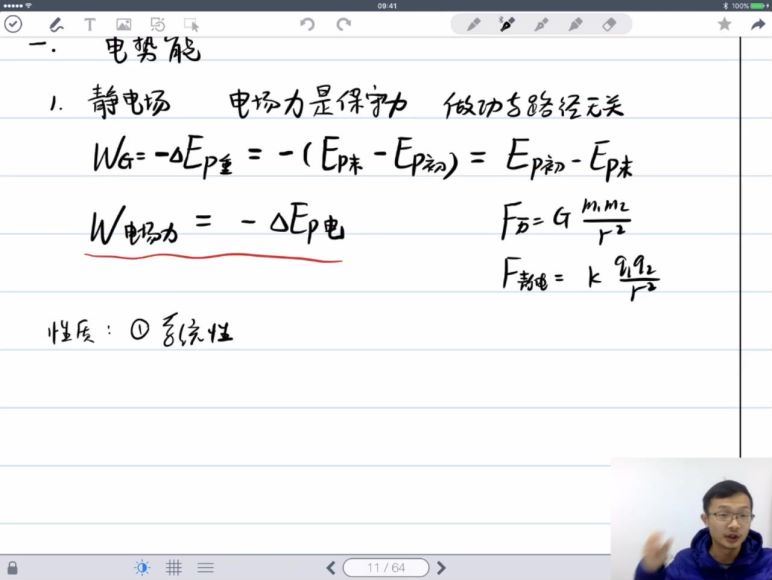 09:41
100%
T
一. 电势能
1. 静电场 电场力是保守力 做功与路径无关
WG=-ΔEp重 = -(Ep末 - Ep初) = Ep初 - Ep末
W电场力 = - ΔEp电
F万= G m₁m₂/r²
F静电= k q₁q₂/r²
性质: ① 系统性
11 / 64